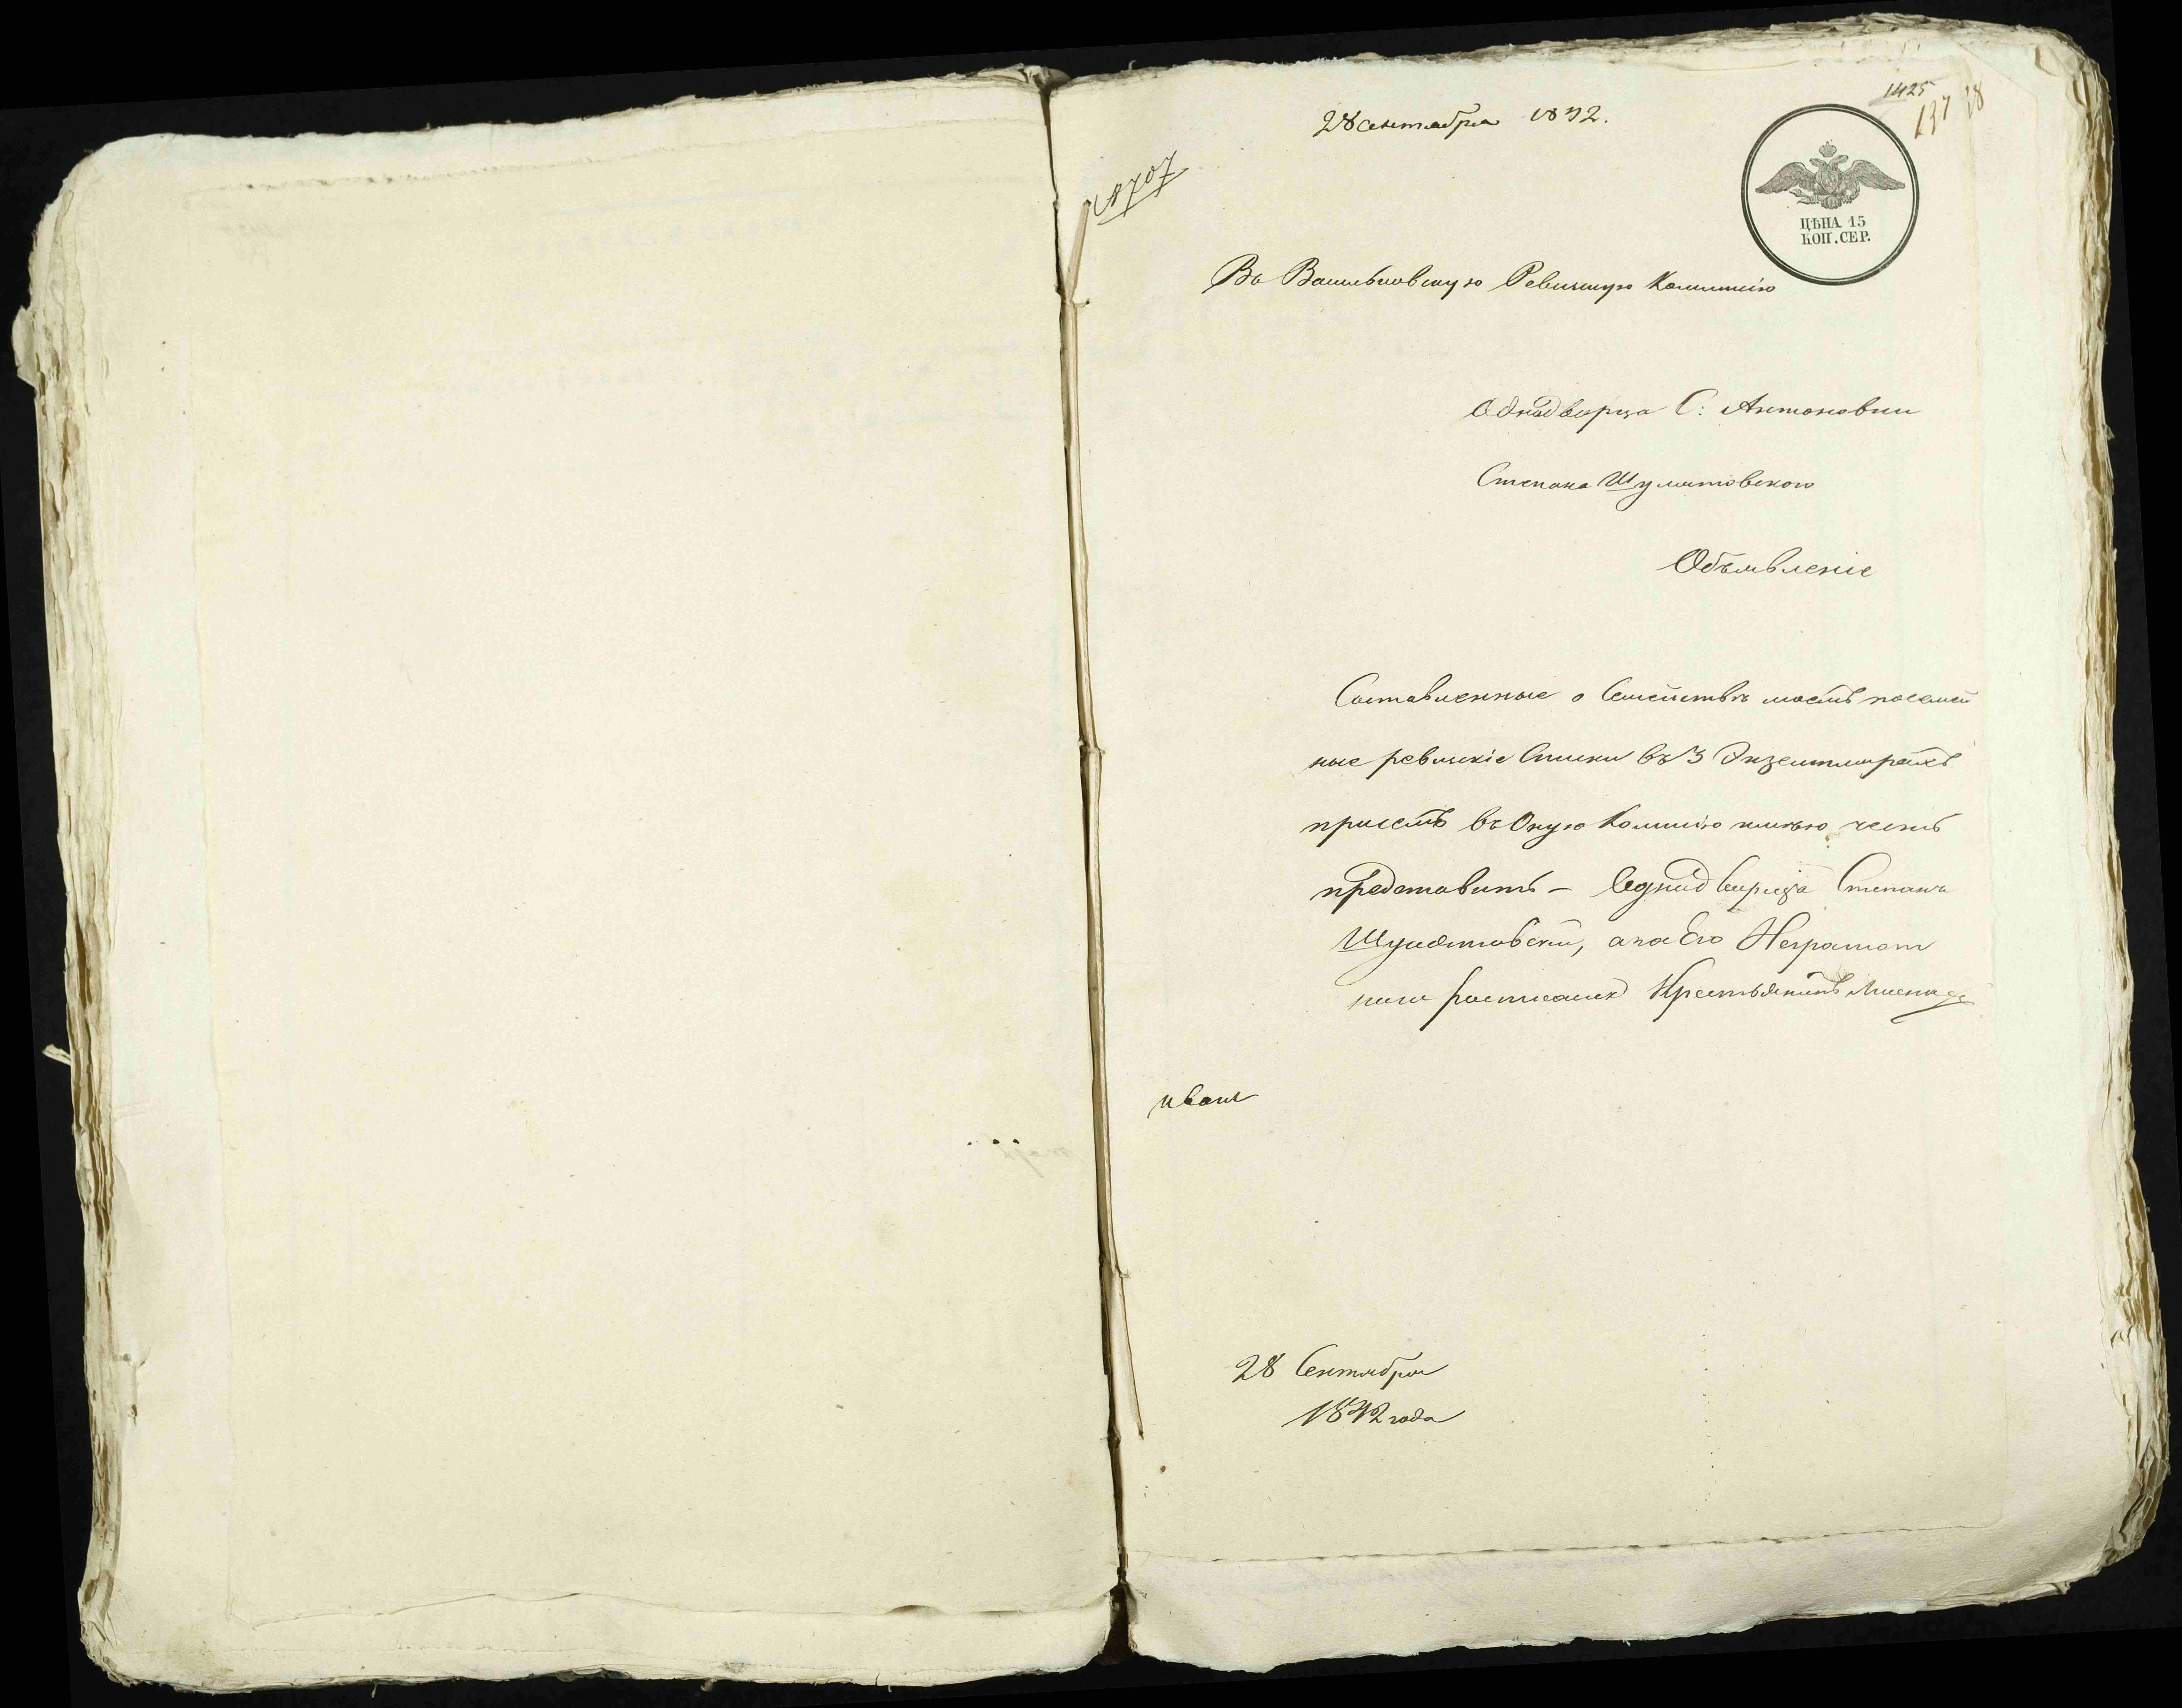 1425
137 28
28 сентября 1842.
№ 707
ЦѢНА 15
КОП. СЕР.
Въ Васильковскую Ревизскую Коммисію
Однодворца С: Антоновки
Степана Шумятовского
Объявленіе
Составленные о Семействѣ моемъ посемей
ные ревизкіе Списки въ 3 Экземплярахъ
при семъ въ Оную Коммисію имѣю честь
представить – Однодворца Степанъ
Шумятовскій, а за Его Неграмот
наго росписался Крестьянинъ
иванъ
28 Сентября
1842 года